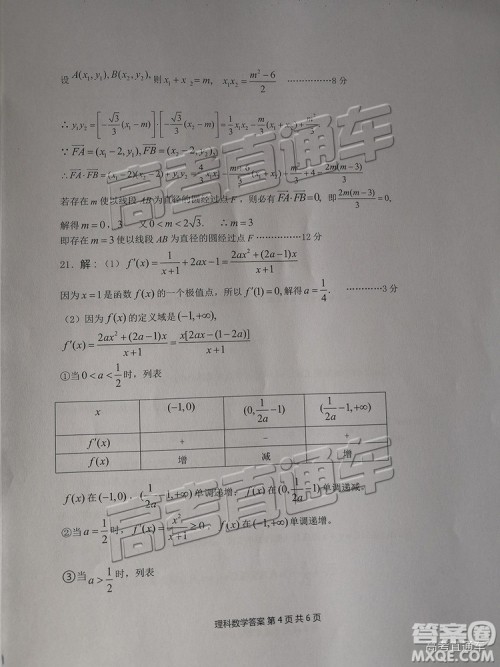 设 A(x₁,y₁),B(x₂,y₂),则 x₁+x₂=m, x₁x₂=(m²-6)/2 ……………8分
∴ y₁y₂=[-√3/3(x₁-m)][-√3/3(x₂-m)]=1/3x₁x₂-m/3(x₁+x₂)+m²/3,
∵ FA=(x₁-2,y₁),FB=(x₂-2,y₂)
若存在 m 使以线段 AB 为直径的圆经过点 F , 则必有 FA·FB=0, 即 2m(m-3)/3=0,
解得 m=0,3. 又0<m<2√3. ∴ m=3
即存在 m=3使以线段 AB 为直径的圆经过点 F ……………12分
21. 解:(1) f′(x)=1/(x+1)+2ax-1=(2ax²+(2a-1)x)/(x+1)
因为 x=1是函数 f(x) 的一个极值点, 所以 f′(1)=0, 解得 a=1/4. ……3分
(2)因为 f(x) 的定义域是 (-1,+∞),
f′(x)=(2ax²+(2a-1)x)/(x+1)=x[2ax-(1-2a)]/(x+1)
①当 0<a<1/2 时, 列表
x (-1,0) (0,1/2a-1) (1/2a-1,+∞)
f′(x) + - +
f(x) 增 减 增
f(x) 在 (-1,0), (1/2a-1,+∞) 单调递增; f(x) 在 (0,1/2a-1) 单调递减.
②当 a=1/2 时, f′(x)=x²/(x+1)≥0, f(x) 在 (-1,+∞) 单调递增.
③当 a>1/2 时, 列表
理科数学答案 第 4 页 共 6 页
高考直通车
高考直通车
高考直通车
答案圈
MXQE.COM